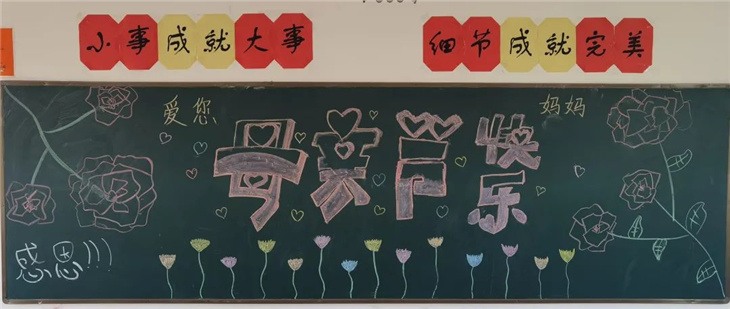 小事成就大事
细节成就完美
爱您
妈妈
母亲节快乐
感恩!!!